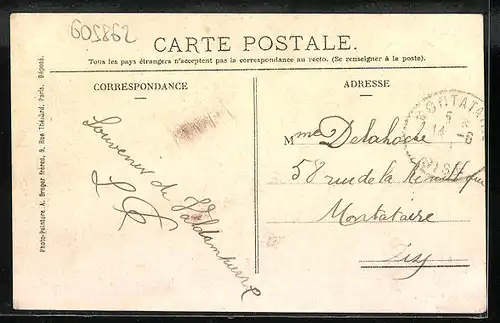 605862
CARTE POSTALE.
Tous les pays étrangers n'acceptent pas la correspondance au recto. (Se renseigner à la poste).
CORRESPONDANCE
ADRESSE
Photo-Peinture, A. Breger Frères, 9, Rue Thénard, Paris. Déposé.
Souvenir de
Mme Delahoche
58 rue de la
Montataire
Oise
MONTATAIRE